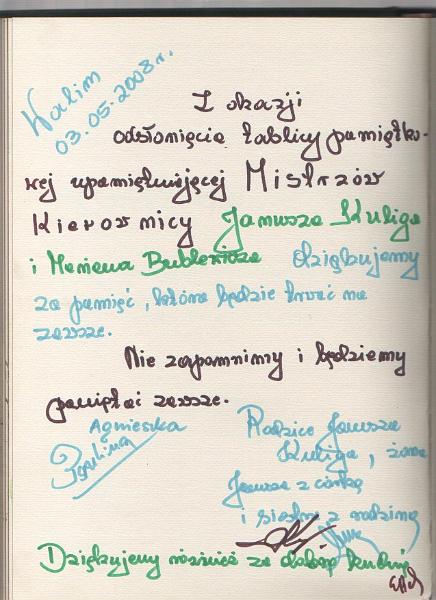 Walim
03.05.2008r.
Z okazji
odsłonięcia tablicy pamiątko-
wej upamiętniającej Mistrzów
Kierownicy Janusza Kuliga
i Mariana Bublewicza dziękujemy
za pamięć, która będzie trwać na
zawsze.
Nie zapomnimy i będziemy
pamiętać zawsze.
Agnieszka
Paulina
Rodzice Janusza
Kuliga, żona
Janusza z córką
i siostra z rodziną
Dziękujemy również za dobrą kuchnię